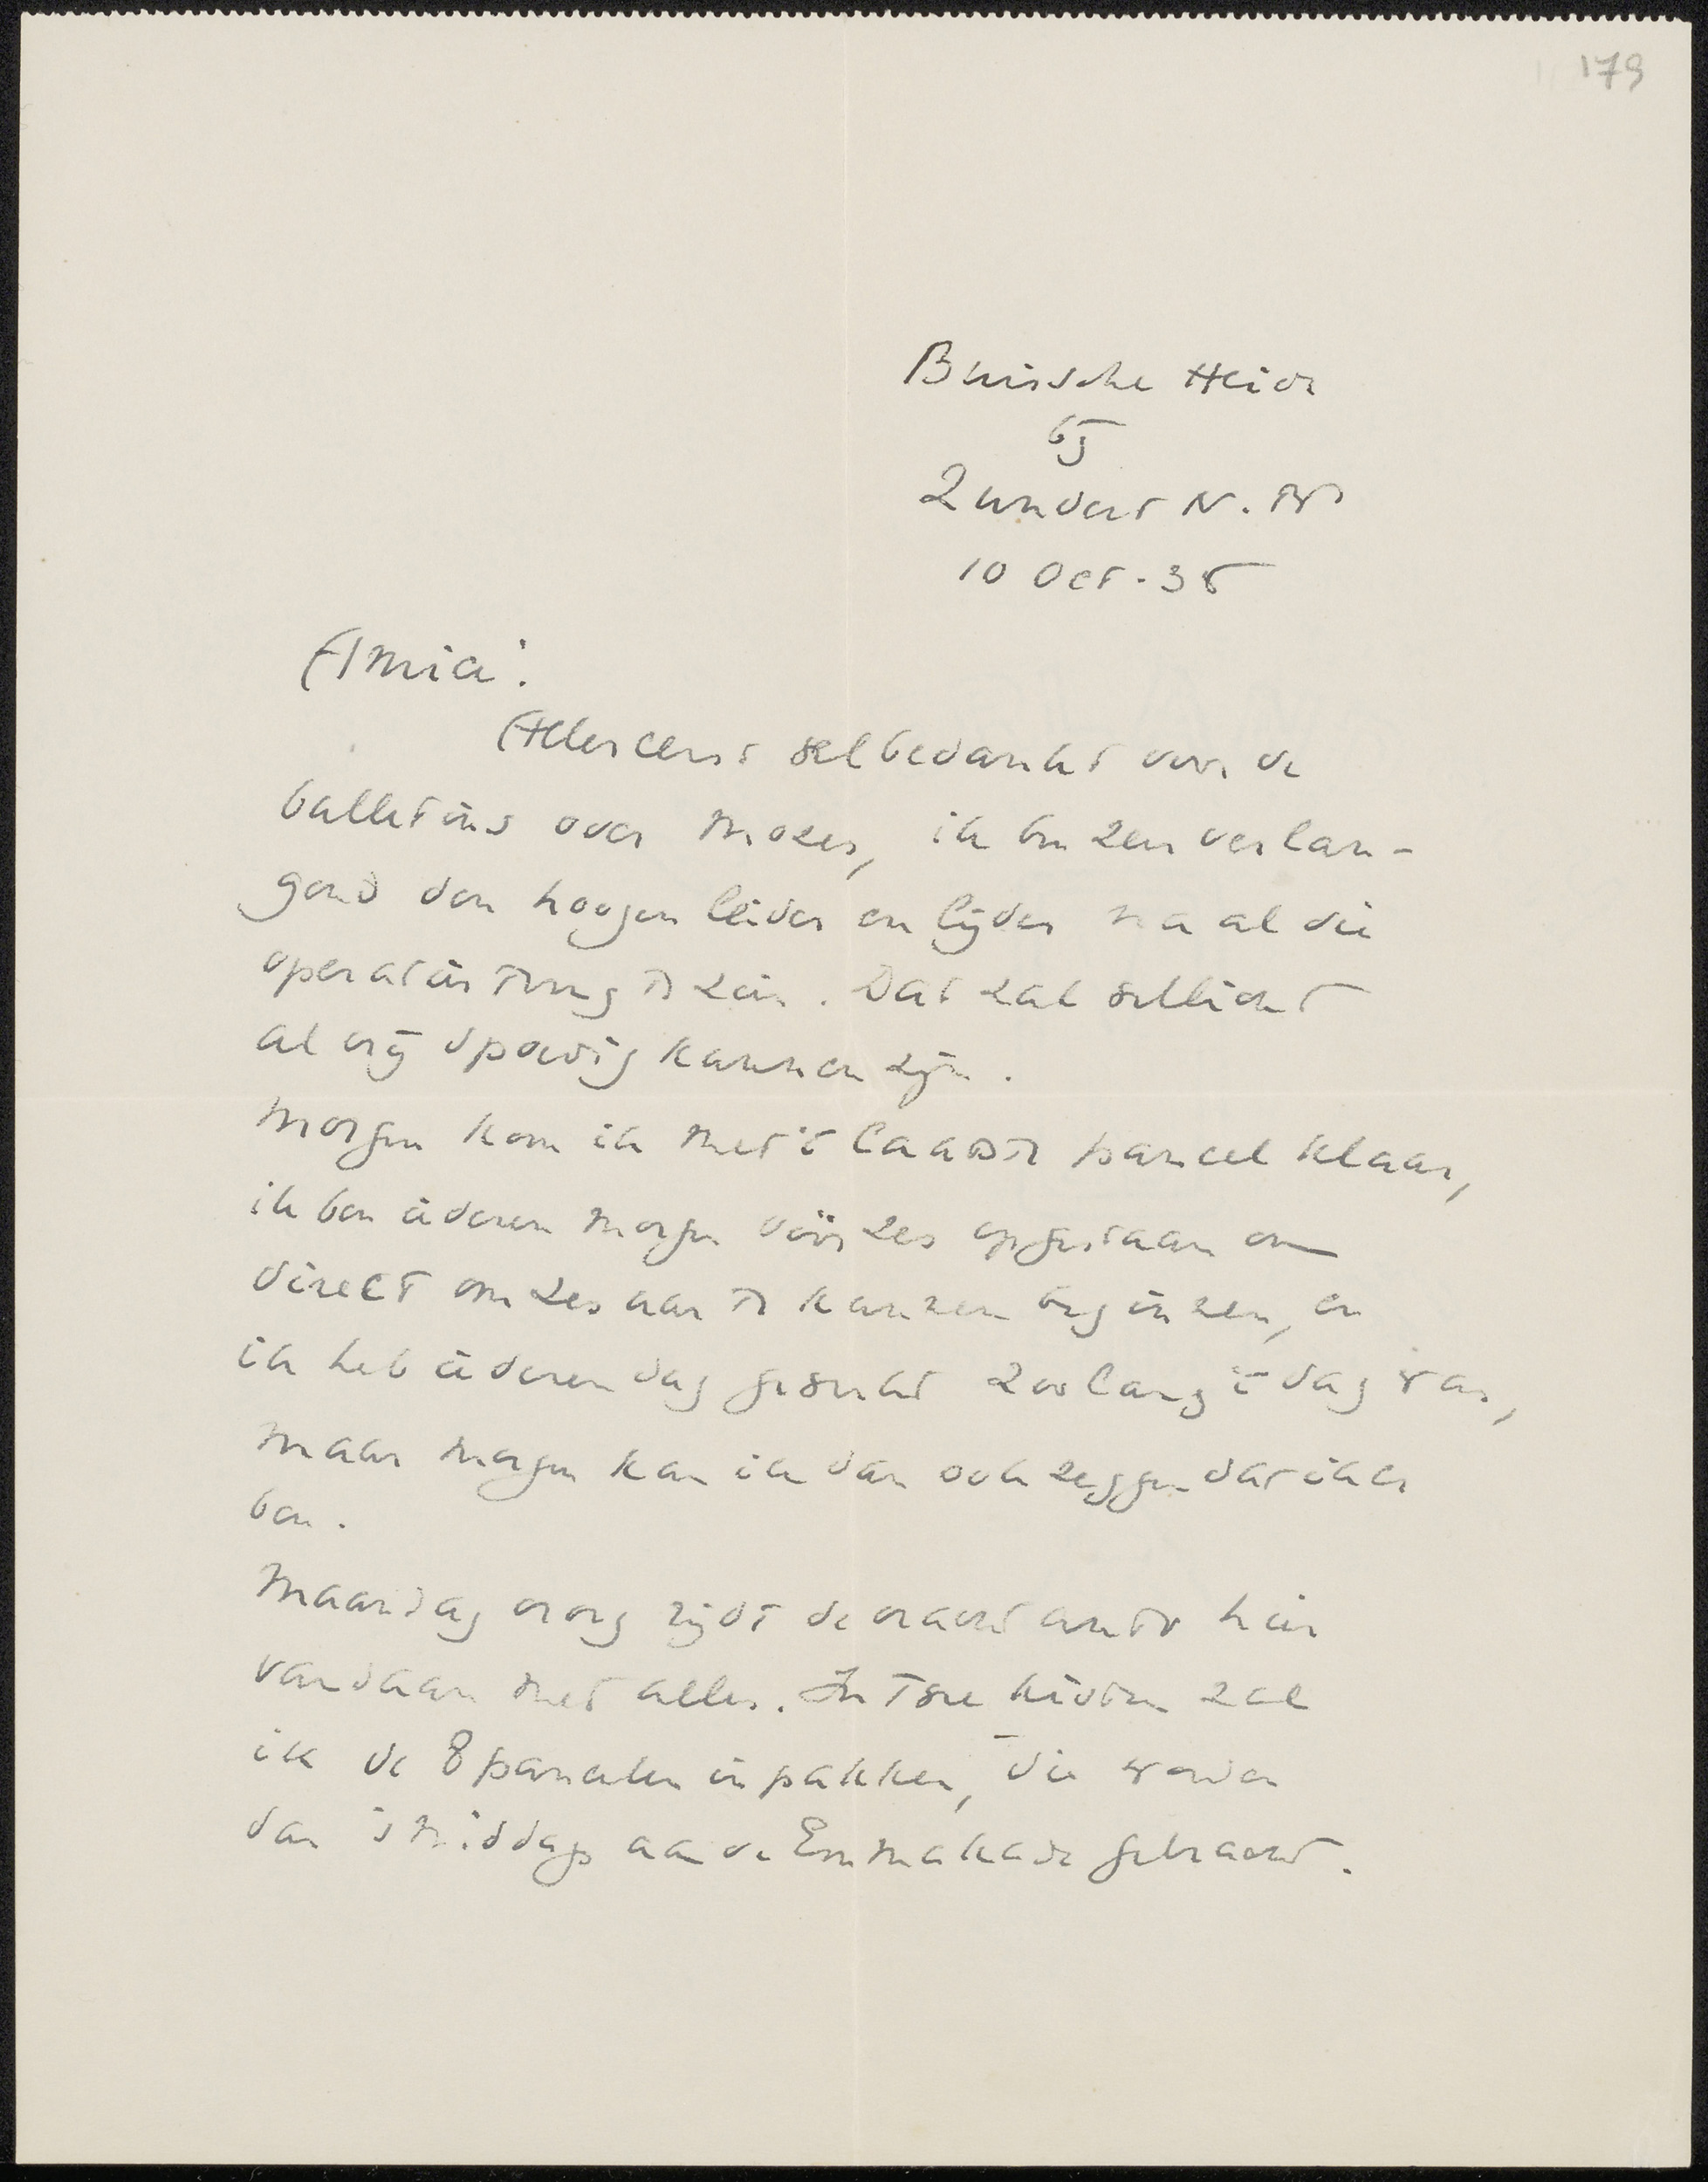 179
Buissche Heide
bij
Zundert N. Br
10 Oct. 35
Amice!
Allereerst wel bedankt voor de
bulletins over Mozes, ik ben zeer verlan-
gend den hoogen leider en lijder na al die
operaties terug te zien. Dat zal wellicht
al vrij spoedig kunnen zijn.
Morgen kom ik met 't laatste paneel klaar,
ik ben iederen morgen vóór zes opgestaan om
direct om zes uur te kunnen beginnen, en
ik heb iederen dag gewerkt zoolang 't dag was,
maar morgen kan ik dan ook zeggen dat ik er
ben.
Maandag vroeg rijdt de vracht auto hier
vandaan met alles. In twee kisten zal
ik de 8 paneelen inpakken, die worden
dan 's middags aan de Emmakade gebracht.